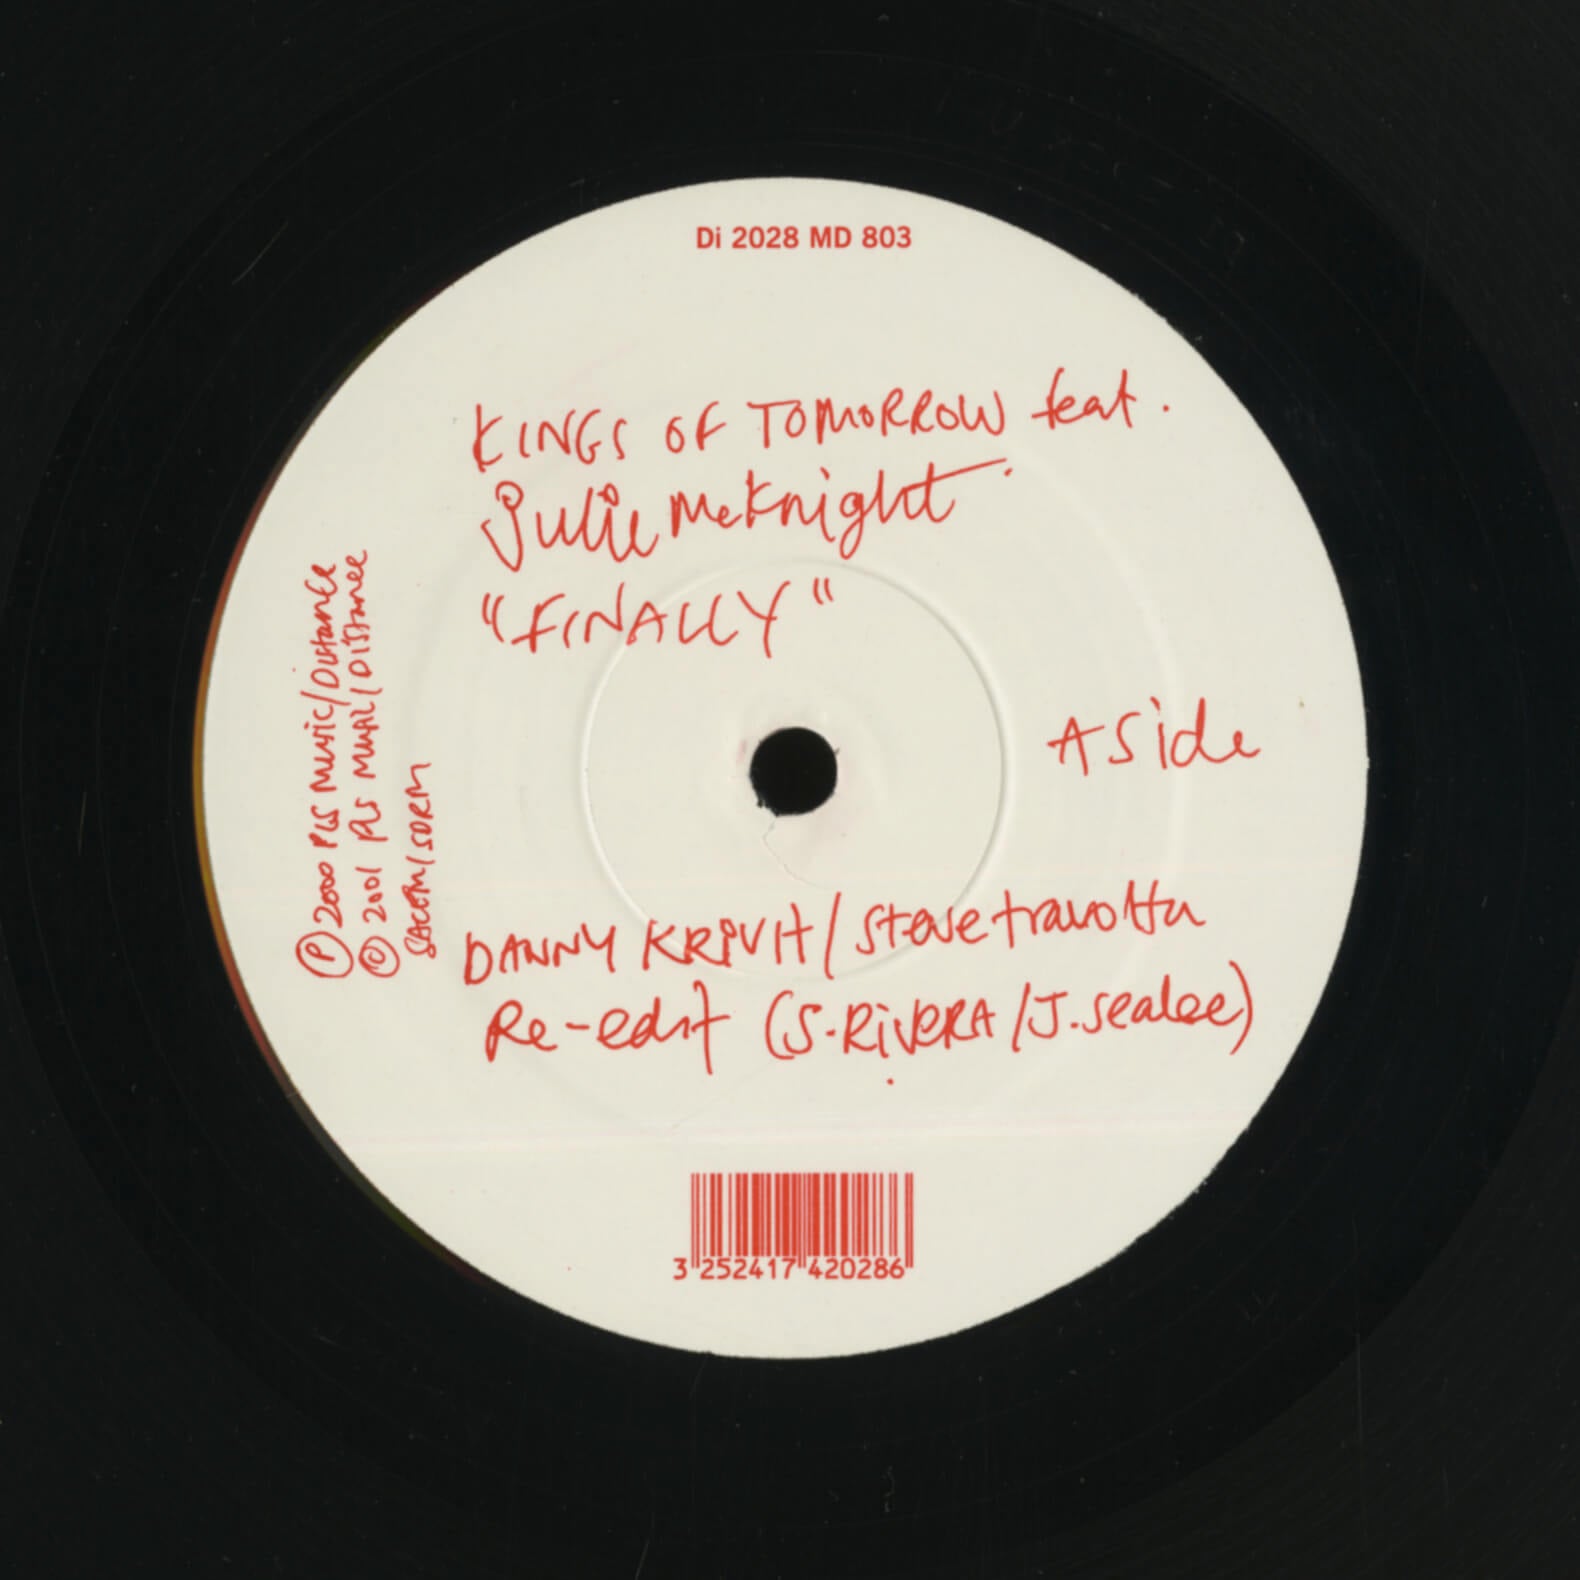 Di 2028 MD 803
KINGS OF TOMORROW feat.
Julie McKnight
"FINALLY"
A Side
℗ 2000 PLS Music/Distance
© 2001 PLS Music/Distance
SACEM/SDRM
DANNY KRIVIT/Steve travolta
Re-edit (S.RiVERA/J.sealee)
3 252417 420286